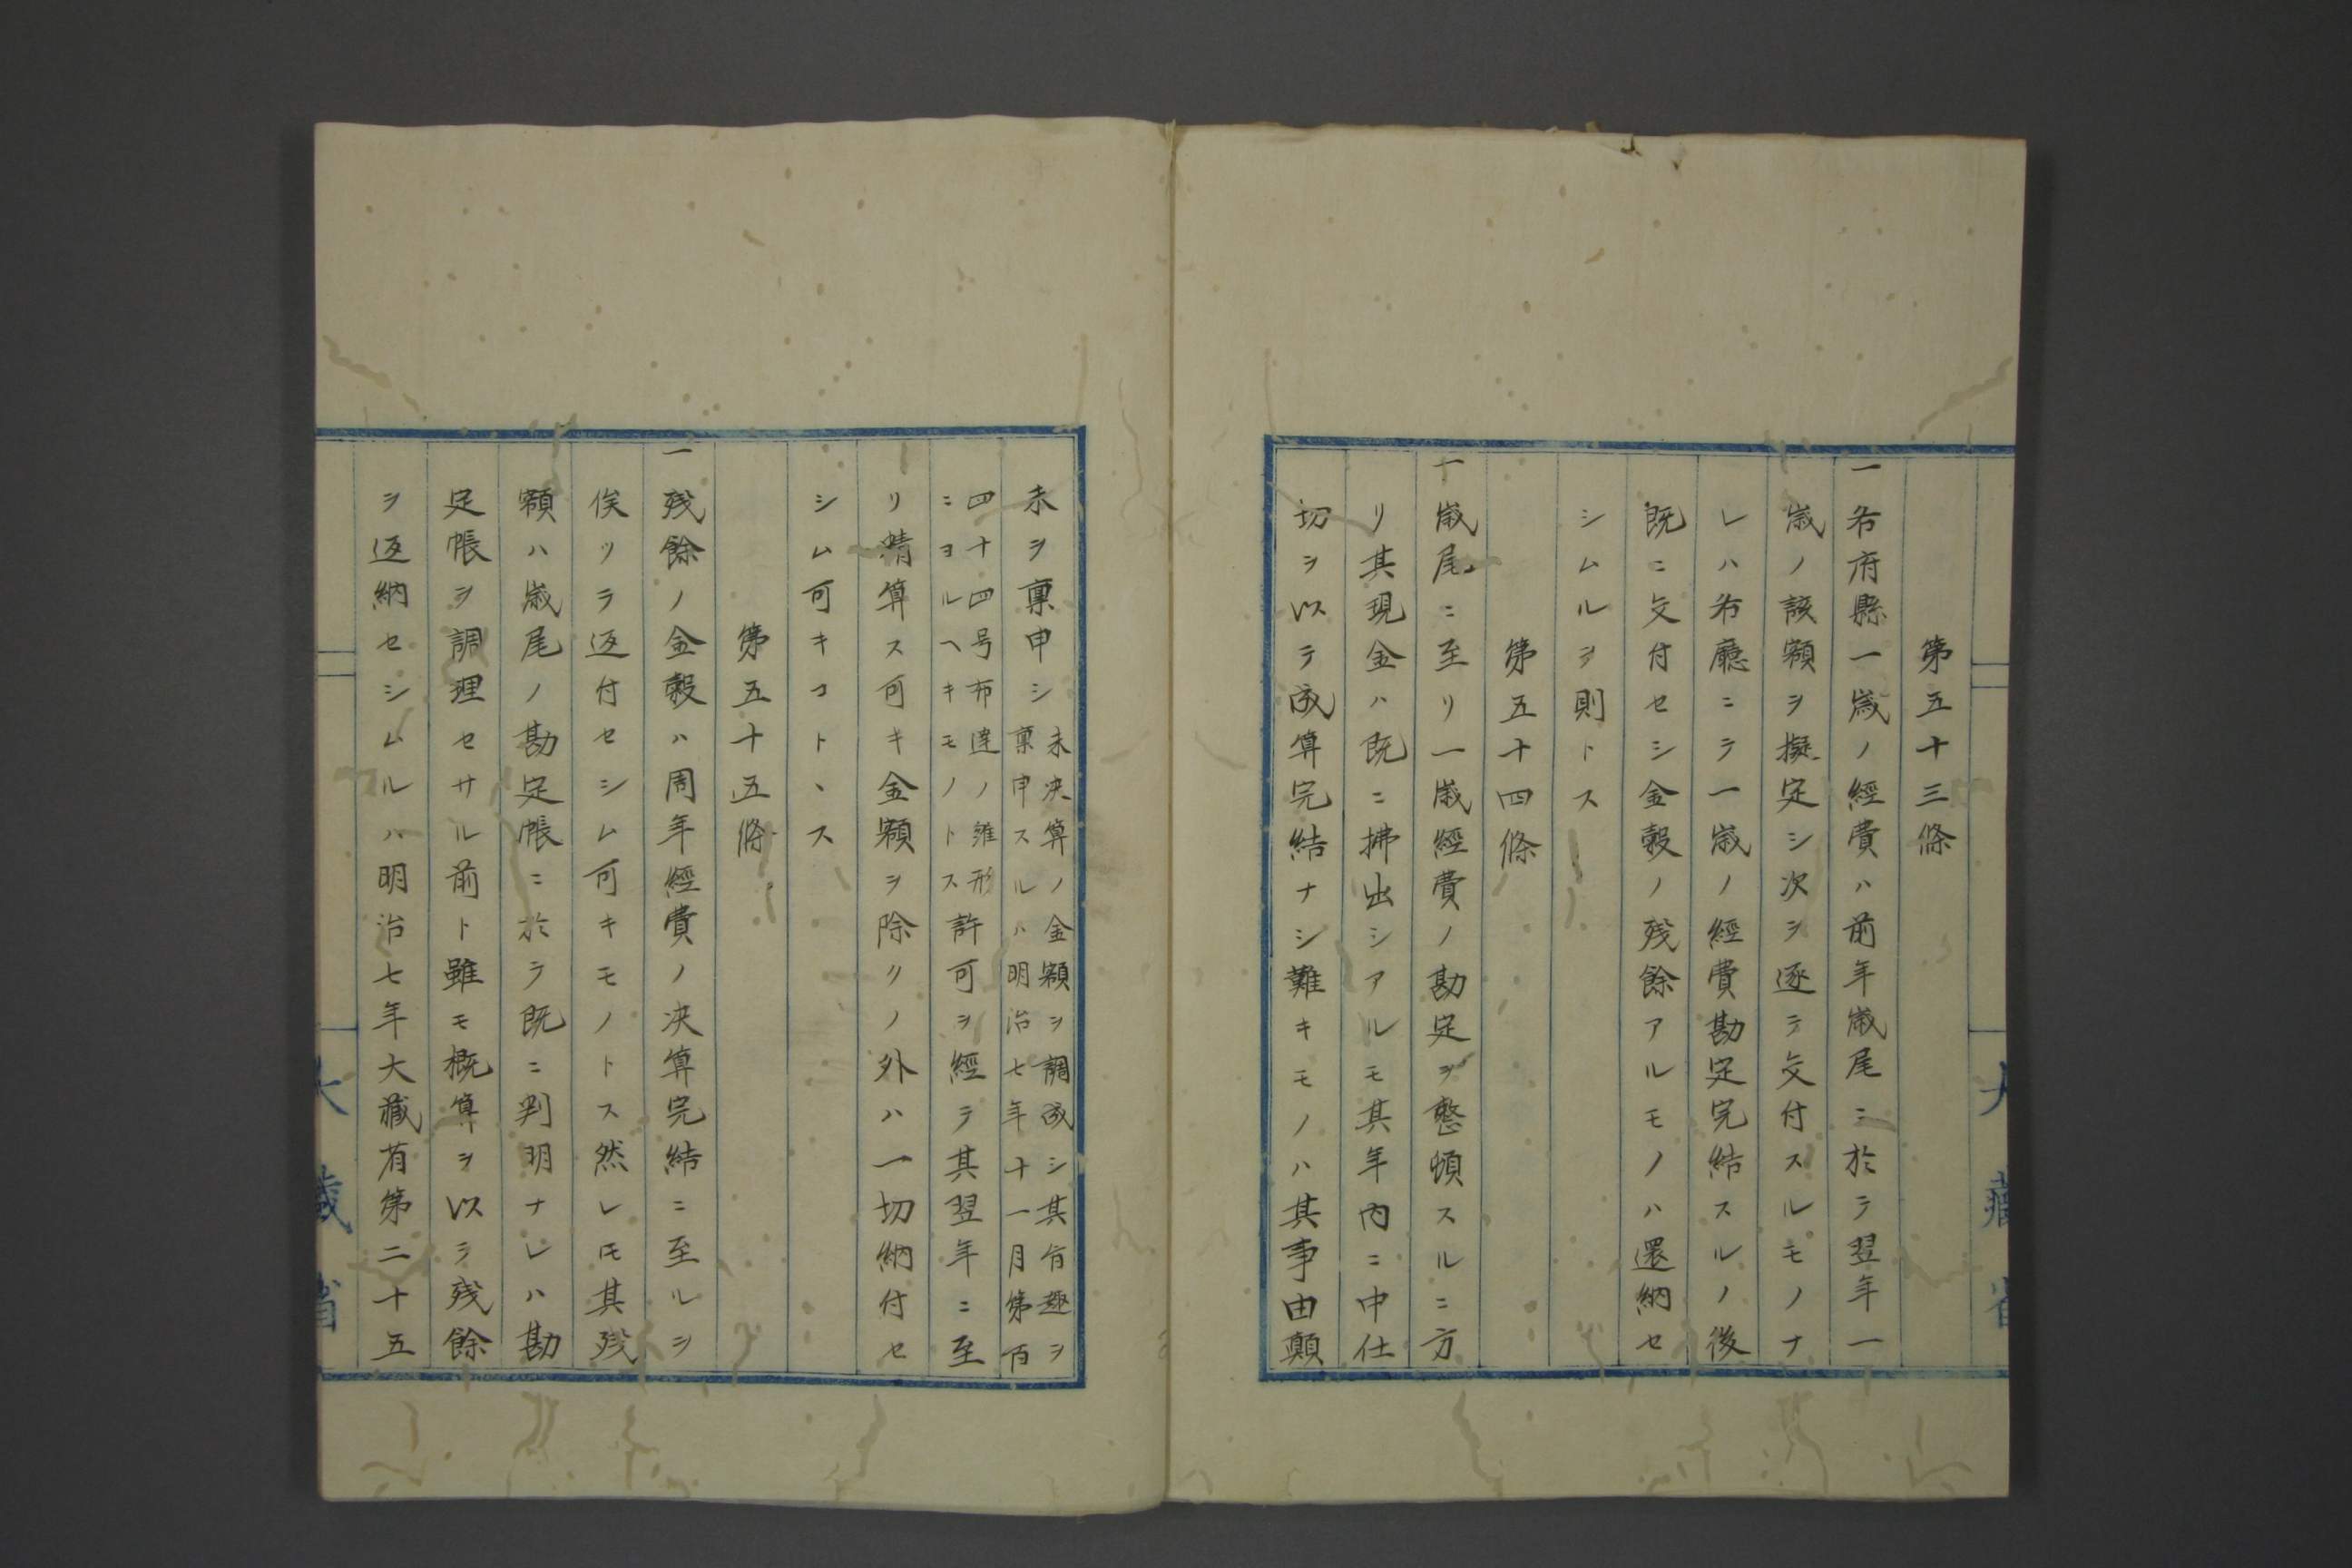 第五十三條
一各府縣一歳ノ經費ハ前年歳尾ニ於テ翌年一
歳ノ該額ヲ擬定シ次ヲ逐テ交付スルモノナ
レハ各廳ニテ一歳ノ經費勘定完結スルノ後
既ニ交付セシ金穀ノ残餘アルモノハ還納セ
シムルヲ則トス
第五十四條
一歳尾ニ至リ一歳經費ノ勘定ヲ整頓スルニ方
リ其現金ハ既ニ拂出シアルモ其年内ニ中仕
切ヲ以テ成算完結ナシ難キモノハ其事由顛
大藏省
末ヲ稟申シ
未決算ノ金額ヲ調成シ其旨趣ヲ
稟申スルハ明治七年十一月第百
四十四号布達ノ雛形
ニヨルヘキモノトス
許可ヲ經テ其翌年ニ至
リ精算ス可キ金額ヲ除リノ外ハ一切納付セ
シム可キコトヽス
第五十五條
一残餘ノ金穀ハ周年經費ノ决算完結ニ至ルヲ
俟リテ返付セシム可キモノトス然レ𪜈其残
額ハ歳尾ノ勘定帳ニ於テ既ニ判明ナレハ勘
定帳ヲ調理セサル前ト雖モ概算ヲ以テ残餘
ヲ返納セシムルハ明治七年大藏省第二十五
大藏省